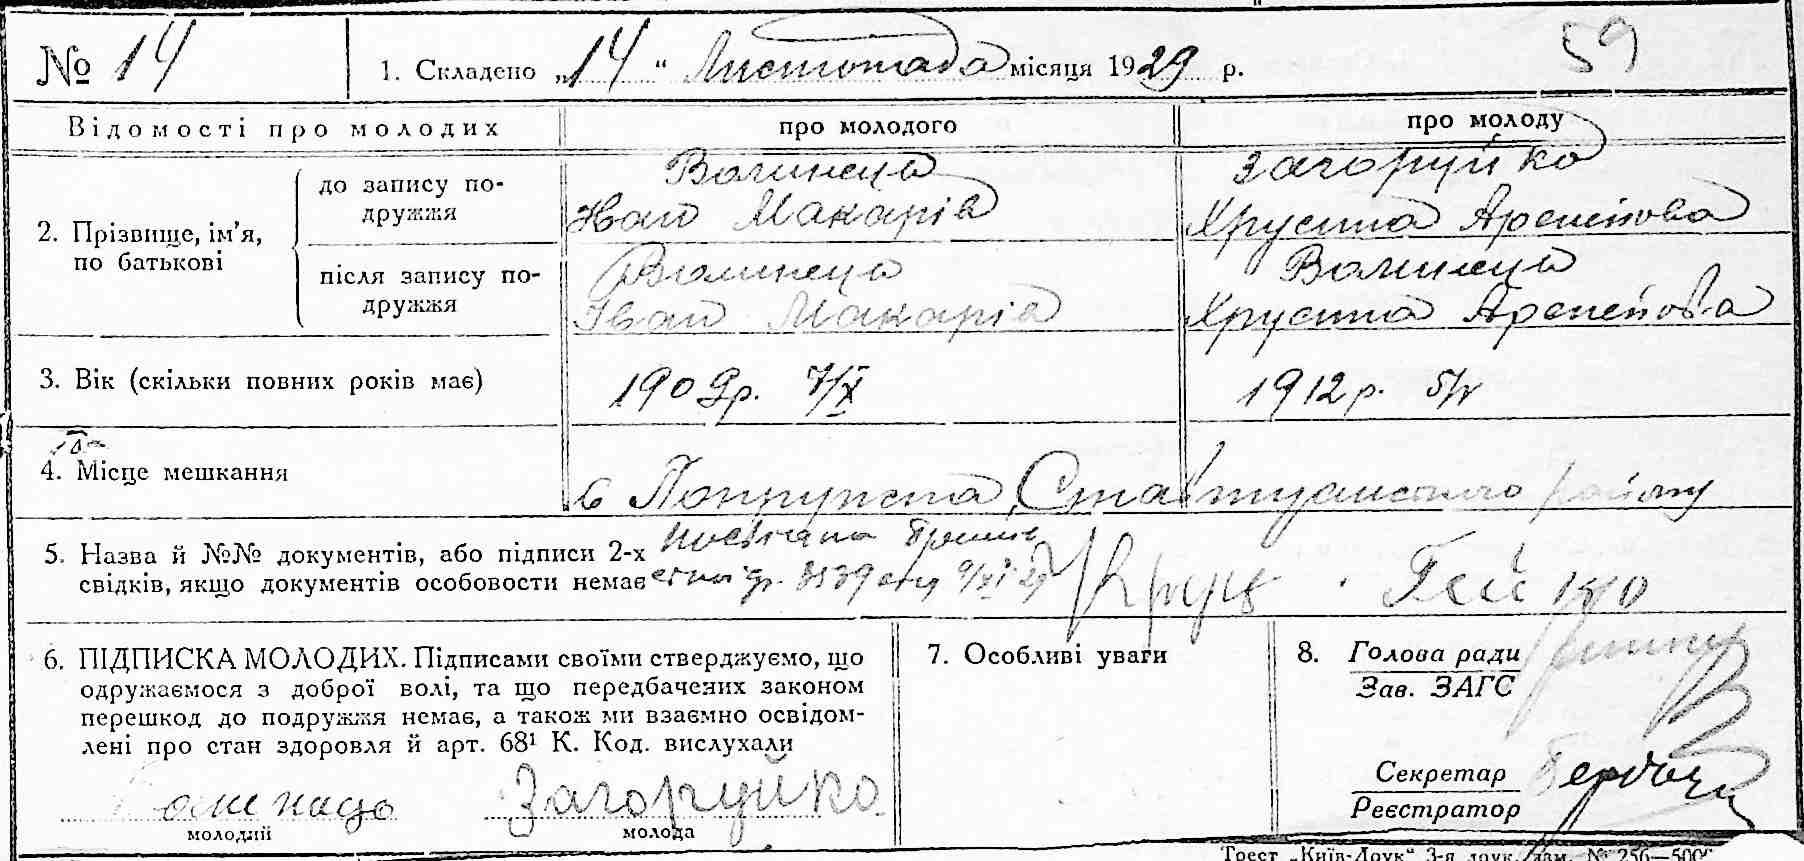 № 14
1. Складено „14“ Листопада місяця 1929 р.
59
Відомості про молодих
про молодого
про молоду
2. Прізвище, ім’я, по батькові
до запису по-
дружжя
Волинець
Іван Макарів
Загоруйко
Хрустина Арсентова
після запису по-
дружжя
Волинець
Іван Макарів
Волинець
Хрустина Арсентова
3. Вік (скільки повних років має)
1909р. 7/X
1912р. 5/V
4. Місце мешкання
с
району
5. Назва й №№ документів, або підписи 2-х
свідків, якщо документів особовости немає
Гейко
6. ПІДПИСКА МОЛОДИХ. Підписами своїми стверджуємо, що
одружаємося з доброї волі, та що передбачених законом
перешкод до подружжя немає, а також ми взаємно освідом-
лені про стан здоровля й арт. 68¹ К. Код. вислухали
Загоруйко
молодий
молода
7. Особливі уваги
8. Голова ради
Зав. ЗАГС
Секретар
Реєстратор
Трест „Київ-Друк“ 3-я друк. зам. № 256—500